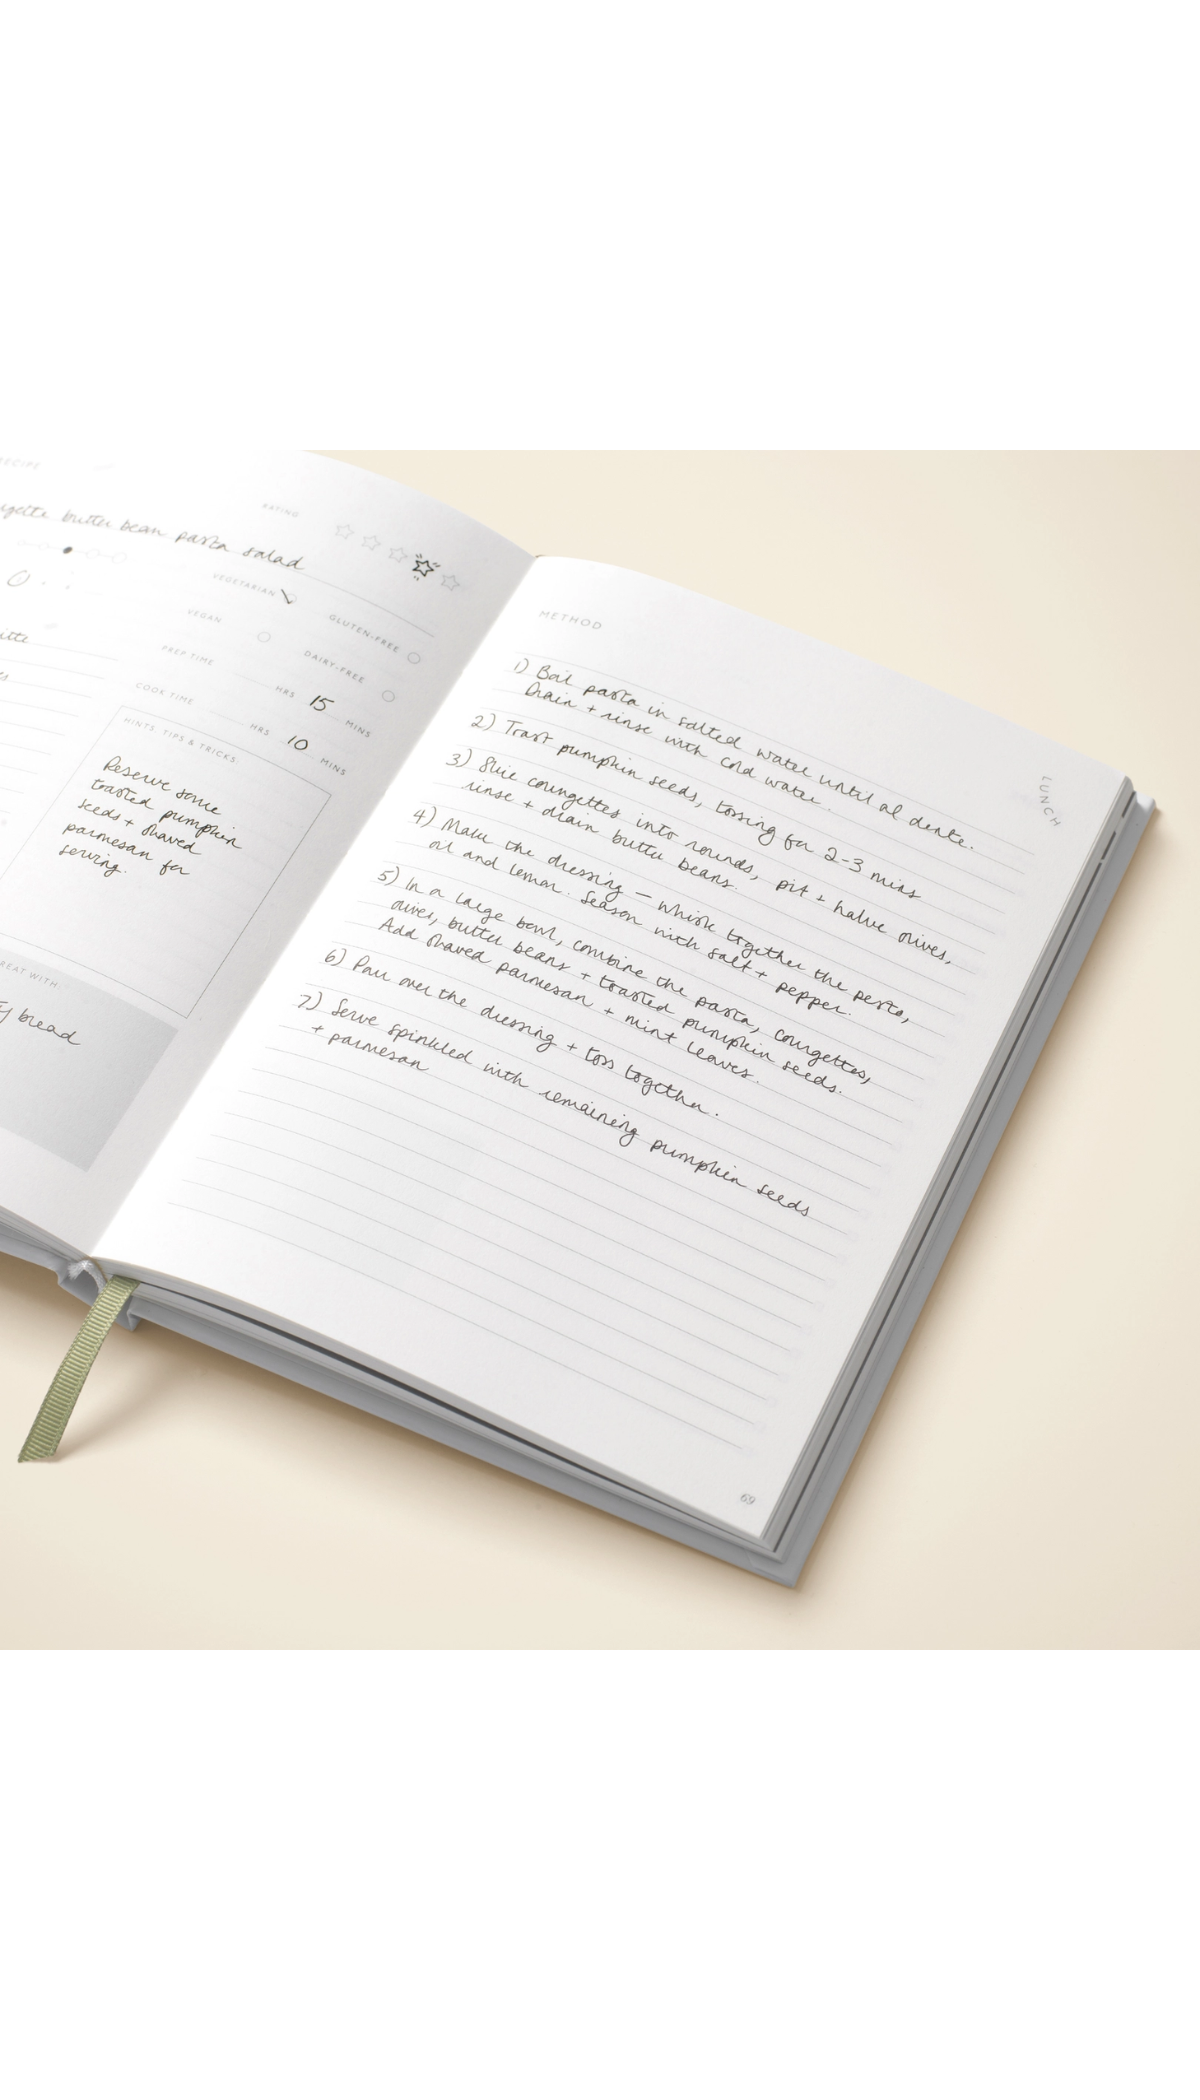 RECIPE
butter bean pasta salad
RATING
VEGETARIAN
GLUTEN-FREE
VEGAN
DAIRY-FREE
PREP TIME
HRS 15 MINS
COOK TIME
HRS 10 MINS
HINTS, TIPS & TRICKS
Reserve some
toasted pumpkin
seeds + shaved
parmesan for
serving.
WITH
bread
METHOD
1) Boil pasta in salted water until al dente.
Drain + rinse with cold water.
2) Toast pumpkin seeds, tossing for 2-3 mins
3) Slice courgettes into rounds, pit + halve olives,
rinse + drain butter beans.
4) Make the dressing – whisk together the pesto,
oil and lemon. Season with salt + pepper.
5) In a large bowl, combine the pasta, courgettes,
olives, butter beans + toasted pumpkin seeds.
Add shaved parmesan + mint leaves.
6) Pour over the dressing + toss together.
7) Serve spinkled with remaining pumpkin seeds
+ parmesan
LUNCH
69